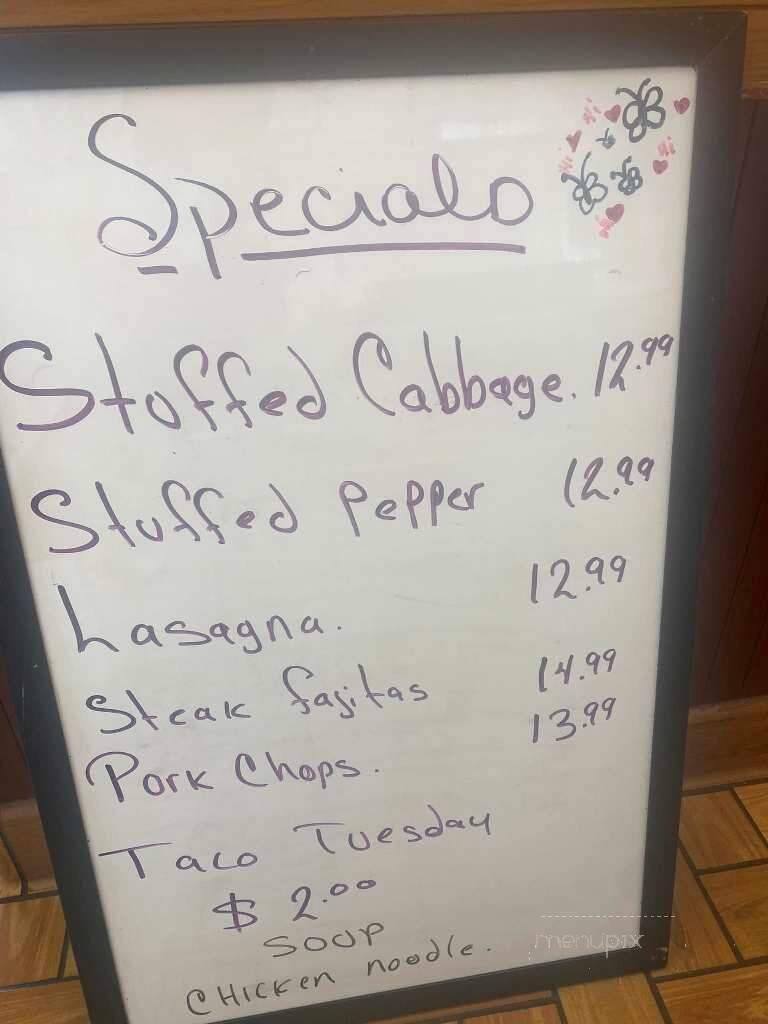 Specials
Hi
Hi
Hi
Stuffed Cabbage. 12.99
Stuffed Pepper 12.99
Lasagna. 12.99
Steak fajitas 14.99
Pork Chops. 13.99
Taco Tuesday
$ 2.00
SOUP
CHICKEN noodle.
menupix